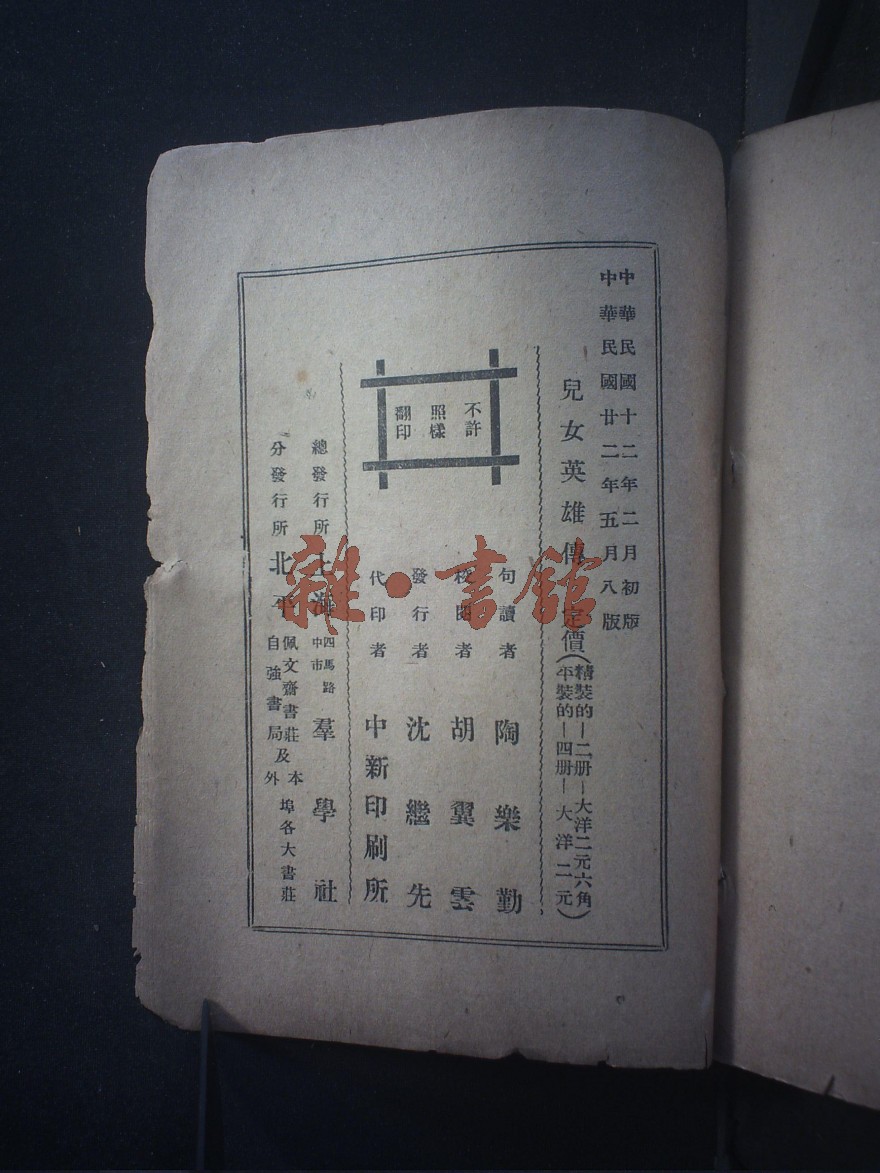 中華民國十二年二月初版
中華民國廿二年五月八版
兒女英雄傳 定價
(精裝的—二册—大洋二元六角
平裝的—四册—大洋二元)
不許
照樣
翻印
句讀者 陶樂勤
校閱者 胡翼雲
發行者 沈繼先
代印者 中新印刷所
總發行所 上海 四馬路
中市 羣學社
分發行所 北平 佩文齋書莊及本
自強書局 外 埠各大書莊
雜·書館